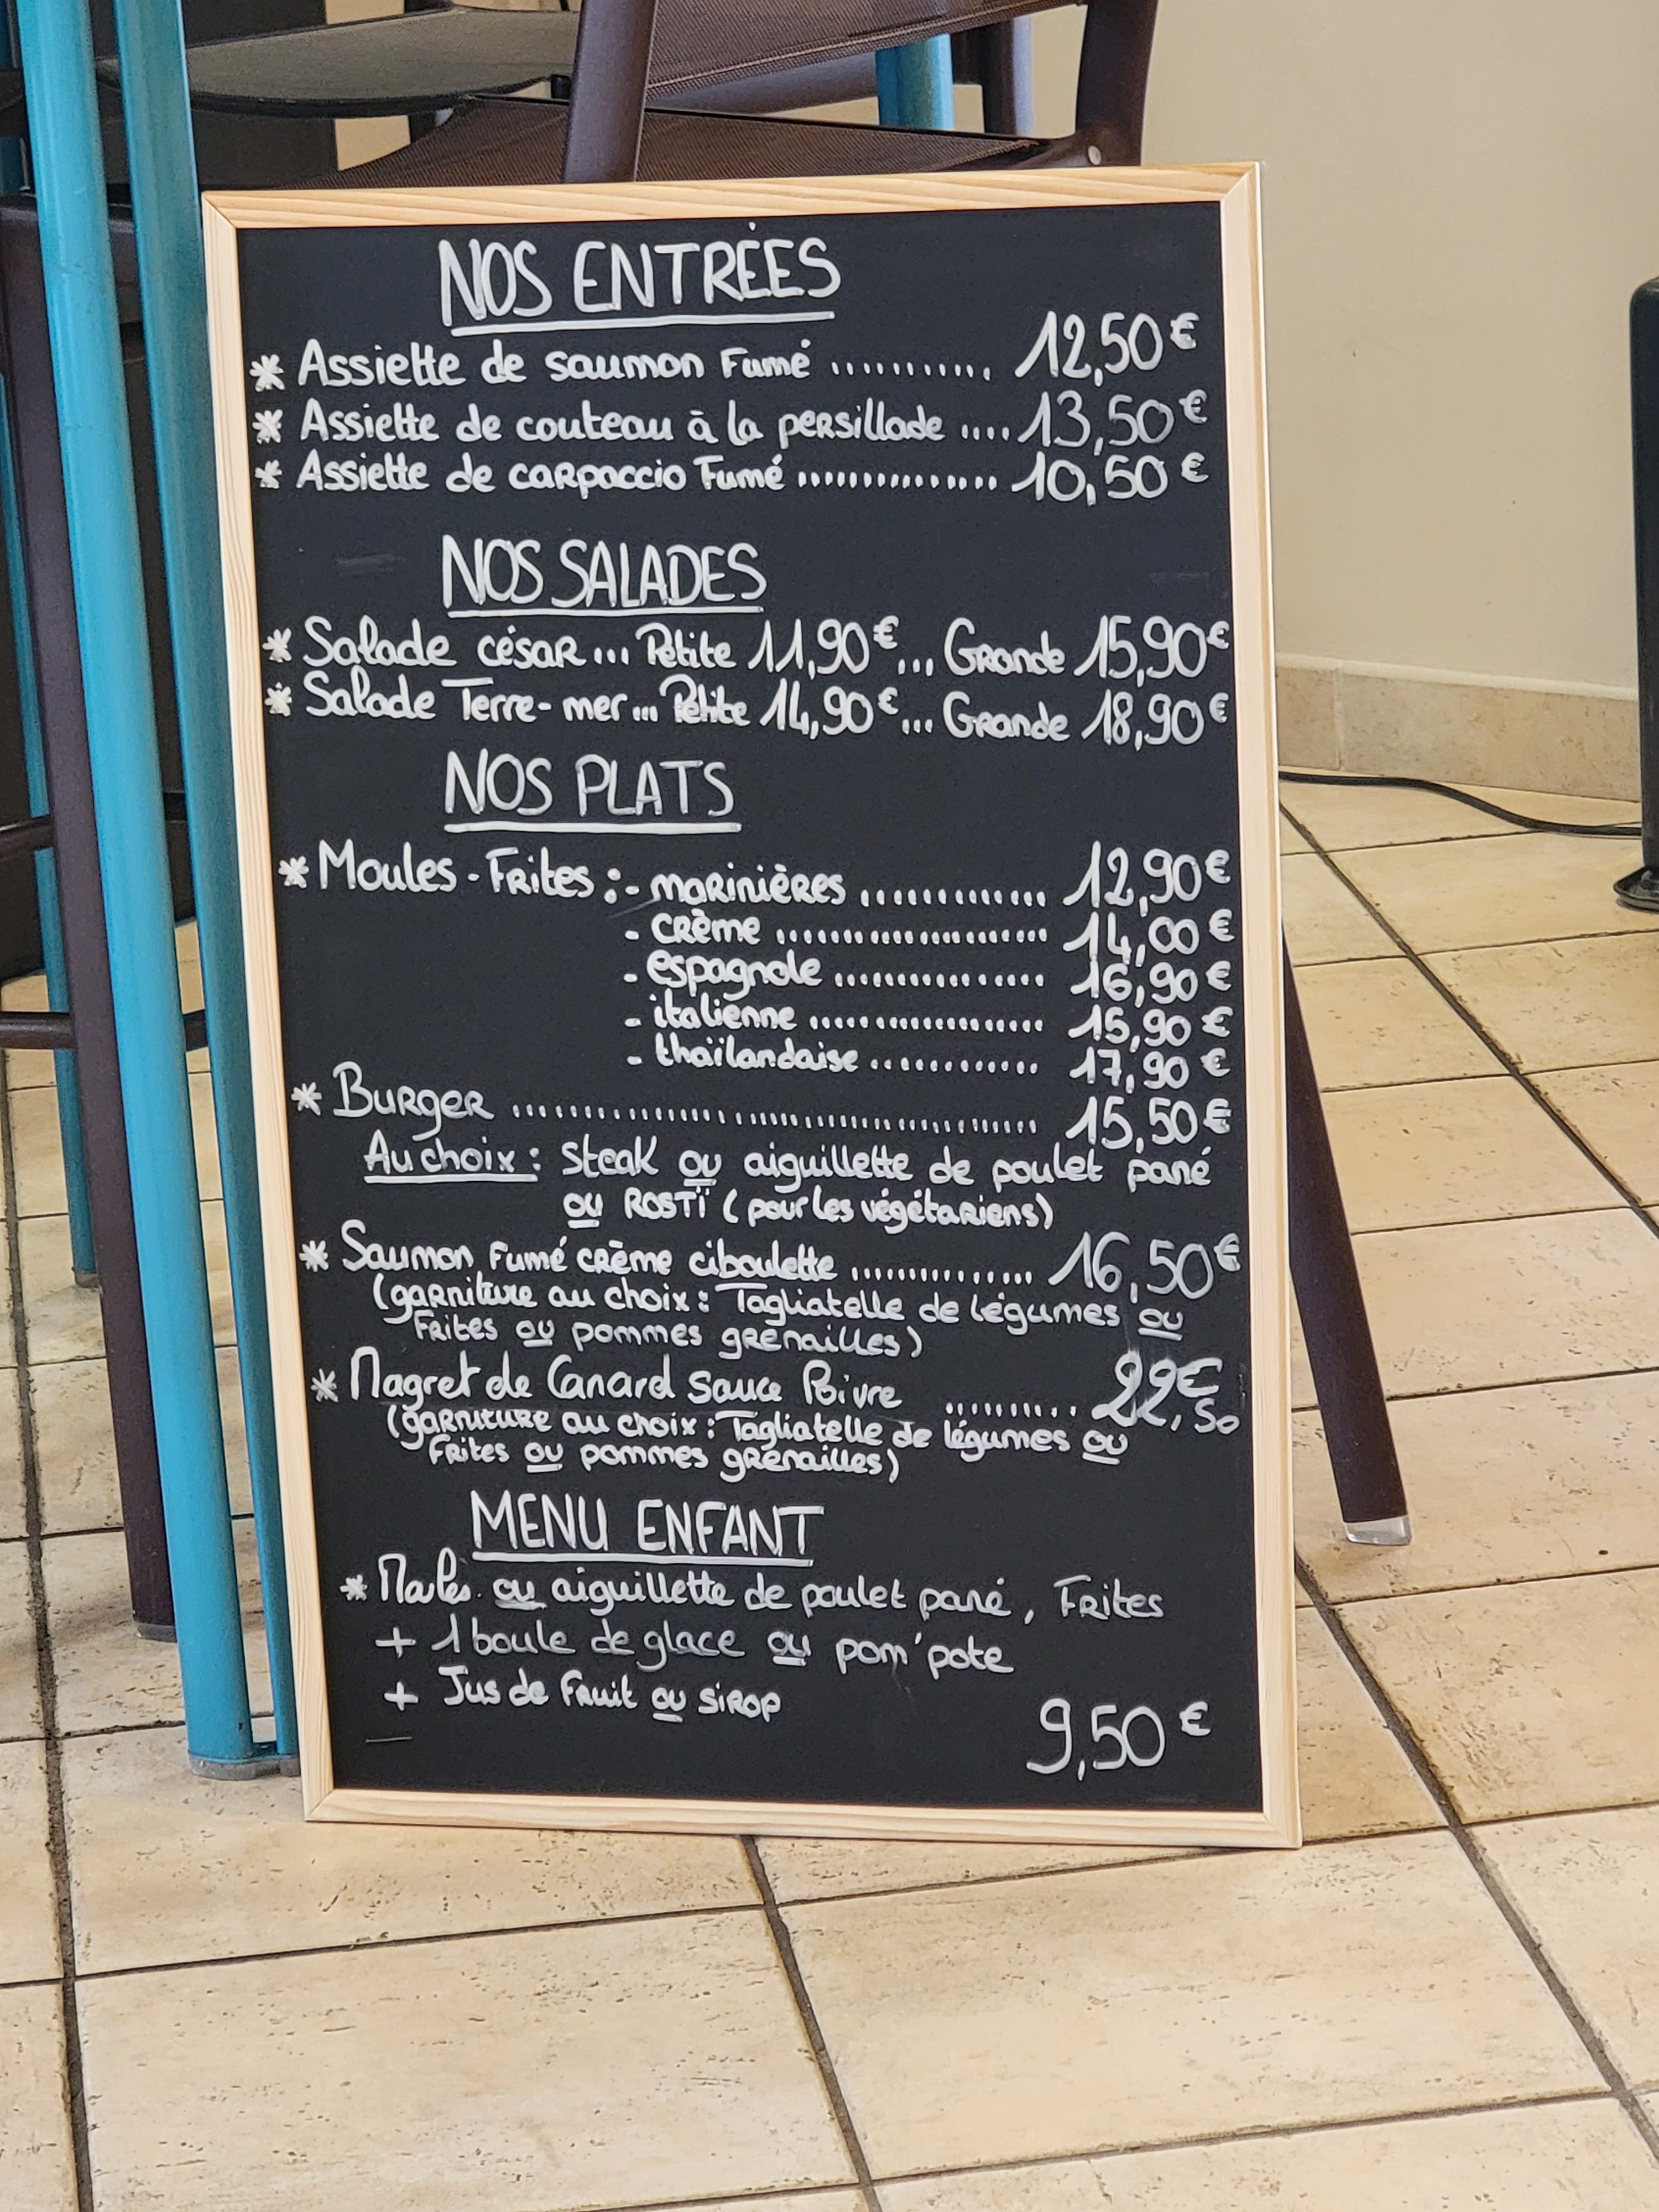 NOS ENTRÉES
* Assiette de saumon Fumé .......... 12,50€
* Assiette de couteau à la persillade .... 13,50€
* Assiette de carpaccio Fumé .............. 10,50€
NOS SALADES
* Salade césar... Petite 11,90€... Grande 15,90€
* Salade Terre-mer... Petite 14,90€... Grande 18,90€
NOS PLATS
* Moules-Frites :- marinières ............. 12,90€
- crème ...................... 14,00€
- espagnole ................ 16,90€
- italienne .................. 15,90€
- thaïlandaise ............ 17,90€
* Burger ...................................... 15,50€
Au choix : steak ou aiguillette de poulet pané
ou ROSTÏ (pour les végétariens)
* Saumon Fumé crème ciboulette ............... 16,50€
(garniture au choix : Tagliatelle de légumes ou
Frites ou pommes grenailles)
* Magret de Canard Sauce Poivre .......... 22€,50
(garniture au choix : Tagliatelle de légumes ou
Frites ou pommes grenailles)
MENU ENFANT
* Moules ou aiguillette de poulet pané, Frites
+ 1 boule de glace ou pom'pote
+ Jus de Fruit ou sirop
9,50€